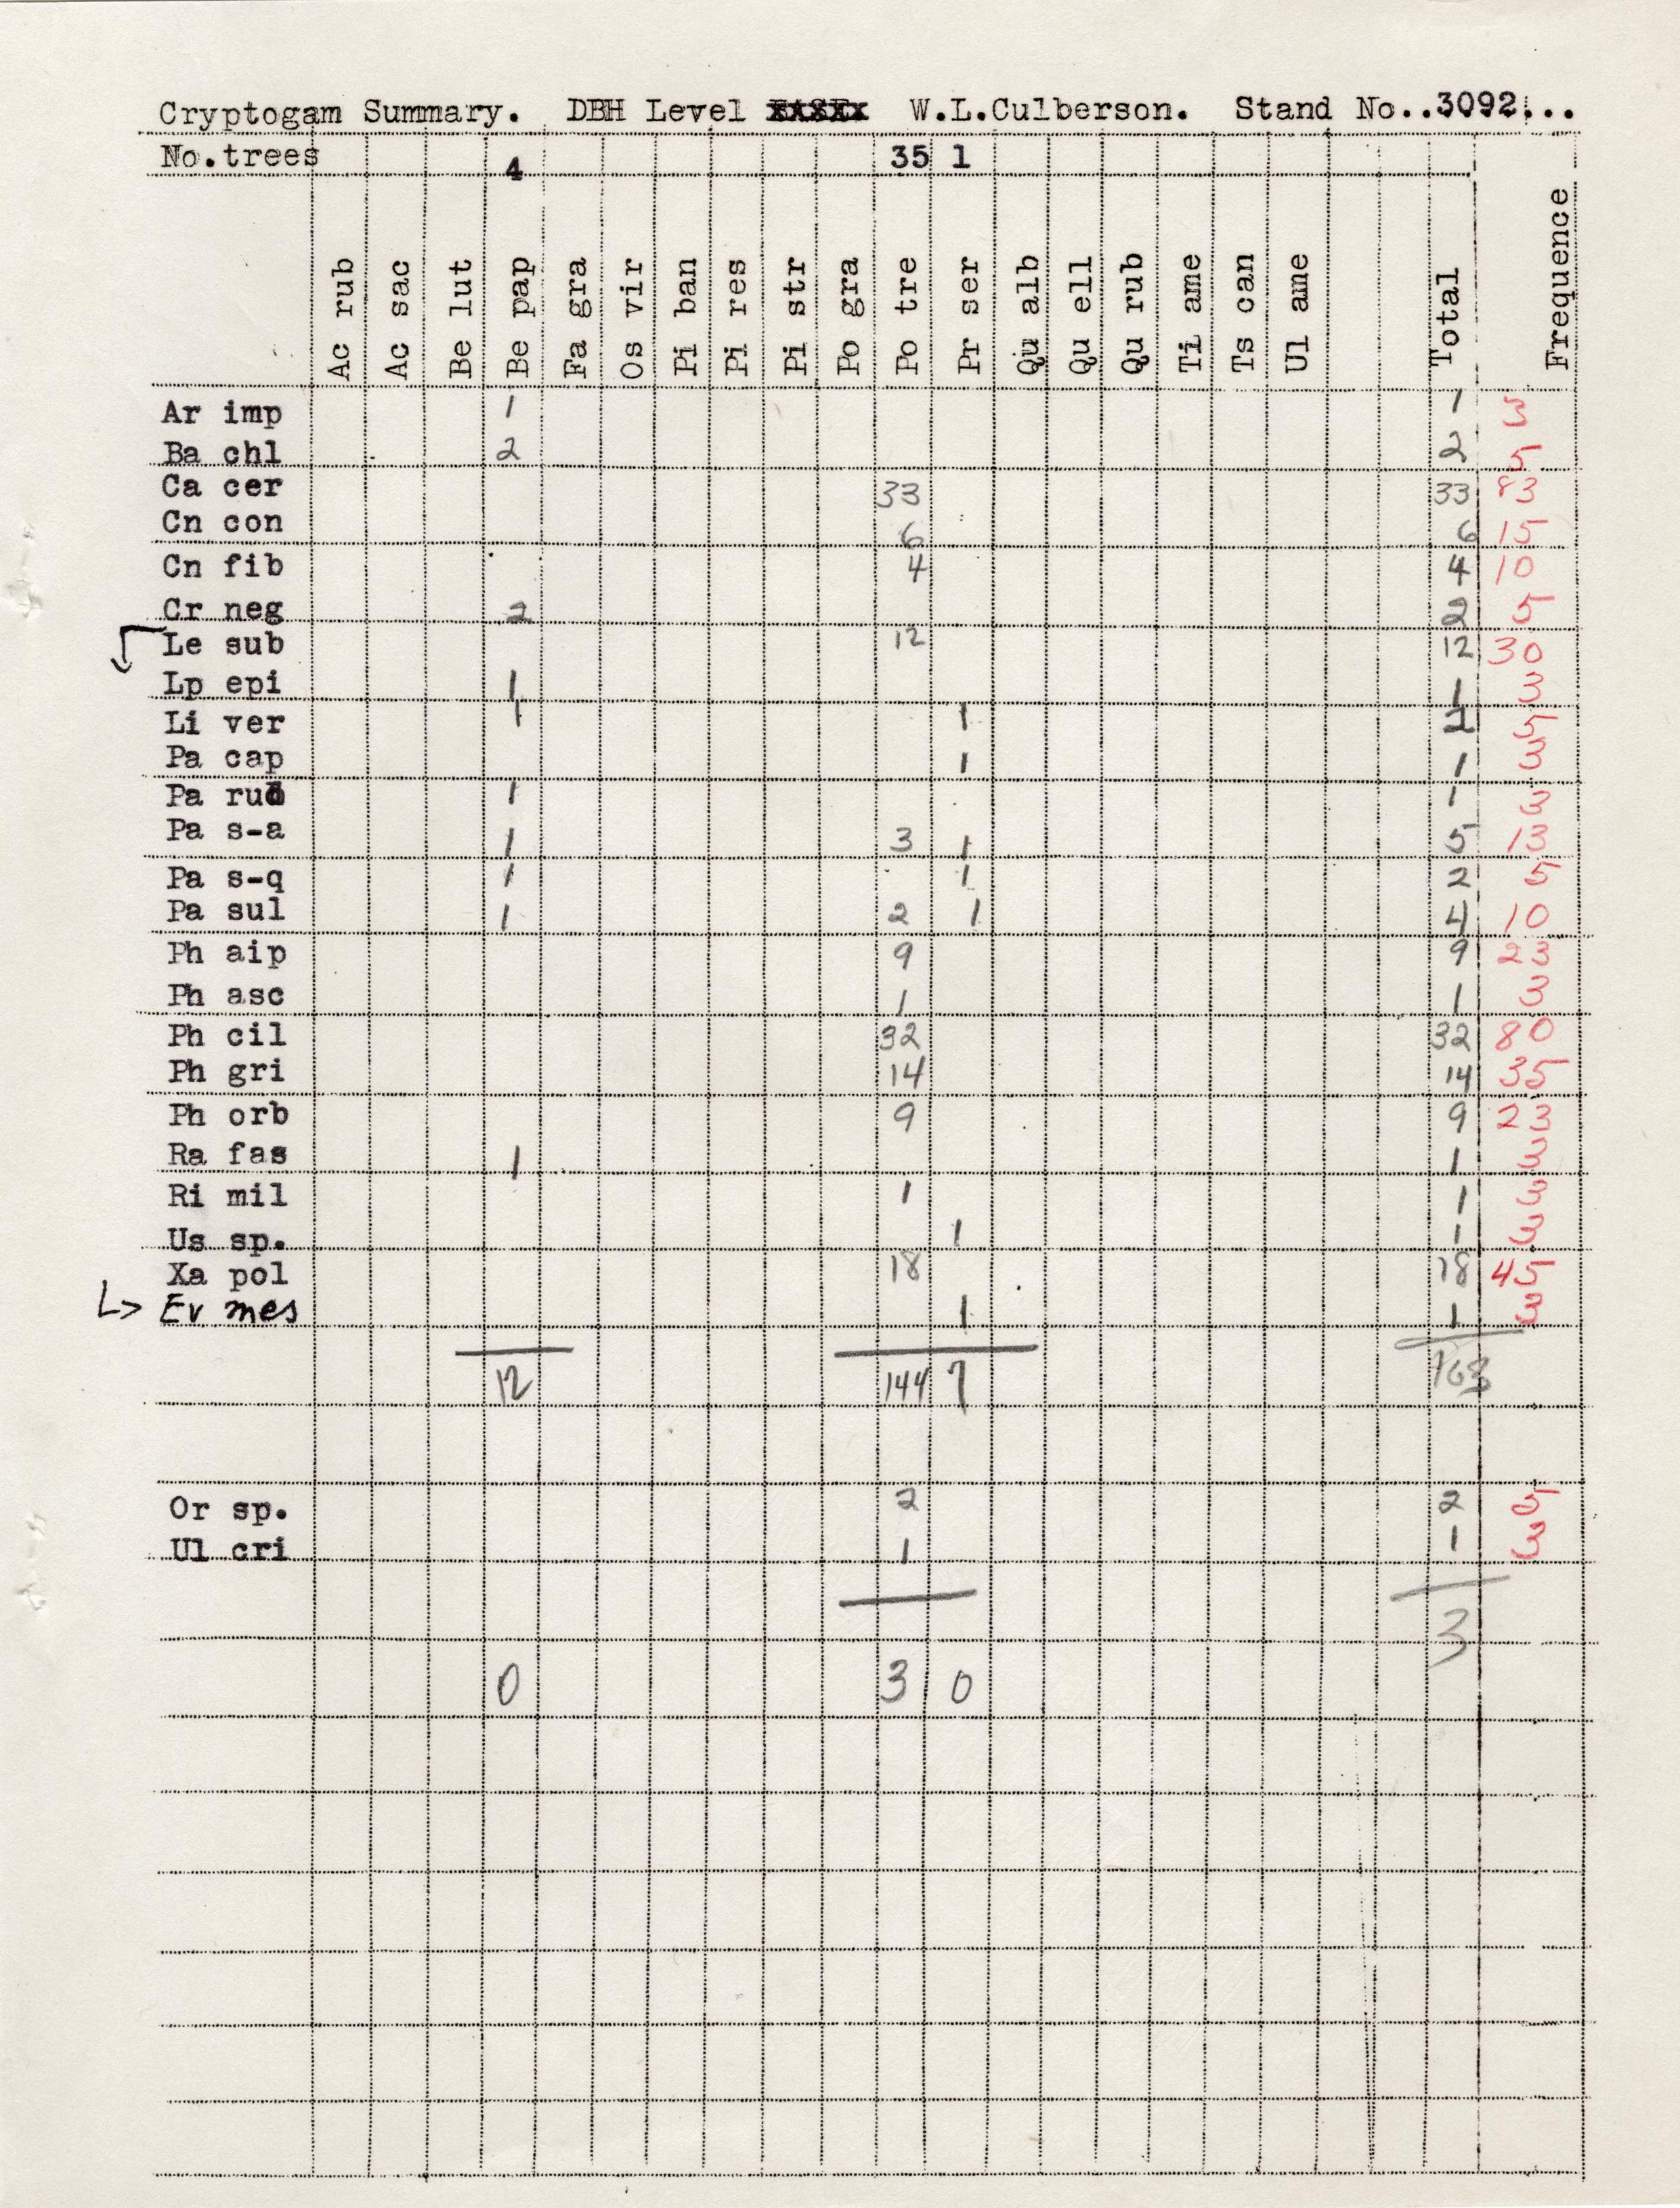 Cryptogam Summary. DBH Level W.L.Culberson. Stand No..3092...
No.trees 4 35 1
Ac rub Ac sac Be lut Be pap Fa gra Os vir Pi ban Pi res Pi str Po gra Po tre Pr ser Qu alb Qu ell Qu rub Ti ame Ts can Ul ame Total Frequence
Ar imp 1 1 3
Ba chl 2 2 5
Ca cer 33 33 83
Cn con 6 6 15
Cn fib 4 4 10
Cr neg 2 2 5
Le sub 12 12 30
Lp epi 1 1 3
Li ver 1 1 2 5
Pa cap 1 1 3
Pa rud 1 1 3
Pa s-a 1 3 1 5 13
Pa s-q 1 1 2 5
Pa sul 1 2 1 4 10
Ph aip 9 9 23
Ph asc 1 1 3
Ph cil 32 32 80
Ph gri 14 14 35
Ph orb 9 9 23
Ra fas 1 1 3
Ri mil 1 1 3
Us sp. 1 1 3
Xa pol 18 18 45
Ev mes 1 1 3
12 144 7 163
Or sp. 2 2 5
Ul cri 1 1 3
3
0 3 0